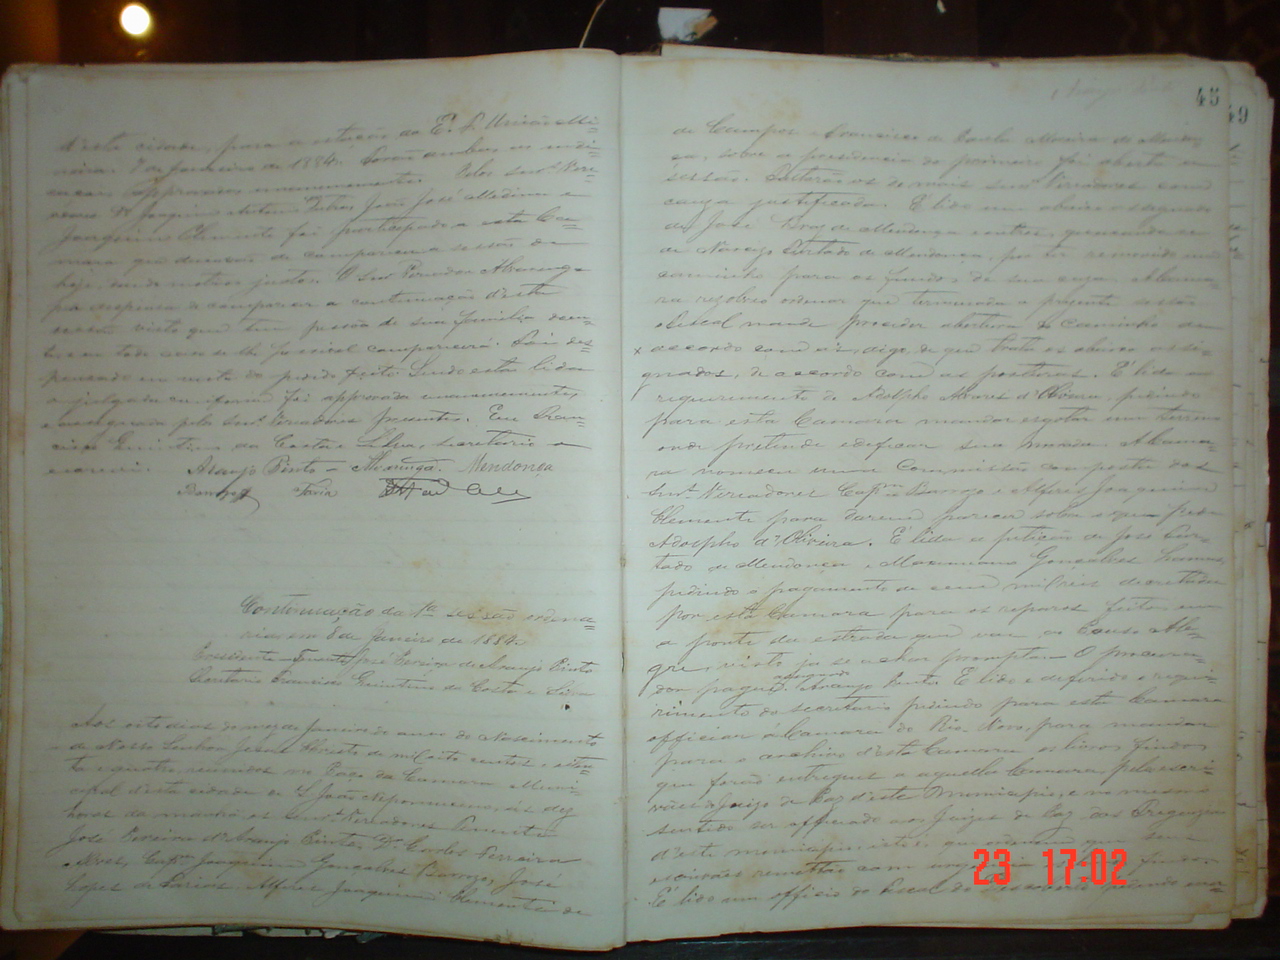 d'esta cidade, para a estação da E. F. União Mi=
neira. 7 de Janeiro de 1884. Forão ambas as indi=
cações approvadas unanimemente. Pelos Snr.s Vere=
adores Dr. Joaquim Antonio Dutra, João José Medina e
Joaquim Clemente foi participado a esta Ca=
mara que deixarão de comparecer a sessão de
hoje, por motivos justos. O Snr. Vereador Alvarenga
pede dispensa de comparecer a continuação d'esta
sessão visto que tem pessôa de sua familia doen=
te, e em todo caso se lhe for possivel comparecerá. Foi dis=
pensado em vista do pedido feito. Sendo esta lida
e julgada conforme foi approvada unanimemente,
e assignada pelos Snr.s Vereadores presentes. Eu Fran=
cisco Quintino da Costa e Silva, secretario a
escrevi.
Araujo Pinto - Alvarenga. Mendonça
Barroso Faria
Continuação da 1ª sessão ordina=
ria em 8 de Janeiro de 1884.
Presidente Tenente José Pereira de Araujo Pinto
Secretario Francisco Quintino da Costa e Silva
Aos oito dias do mez de Janeiro do anno do Nascimento
de Nosso Senhor Jesus Christo de mil oito centos e oiten=
ta e quatro, reunidos no Paço da Camara Muni=
cipal d'esta cidade de S. João Nepomuceno, ás dez
horas da manhã os Snr.s Vereadores Tenente
José Pereira d'Araujo Pinto, Dr. Carlos Ferreira
Alves, Capm. Joaquim Gonçalves Barroso, José
Lopes de Faria, Alferes Joaquim Clemente de
45
49
de Campos e Francisco de Paula Moreira de Mendon=
ça, sobre a presidencia do primeiro foi aberta a
sessão. Faltarão os de mais Snr.s Vereadores com
cauza justificada. É lido um abaixo assignado
de José Luiz de Mendonça e outros, queixando-se
de Narcizo Furtado de Mendonça, por ter removido um
caminho para os fundos de sua caza, a Cama=
ra rezolveo ordenar que terminada a prezente sessão
o Fiscal mande proceder abertura do caminho de
accordo com os, digo, de que trata os abaixo assi=
gnados, de accordo com as posturas. É lido o
requerimento de Adolpho Alvares d'Oliveira, pedindo
para esta Camara mandar esgotar um terreno
onde pretende edificar sua morada. A Cama=
ra nomeou uma Commissão composta dos
Snr.s Vereadores Capm. Barrozo e Alferes Joaquim
Clemente para darem parecer sobre o que pede
Adolpho d'Oliveira. É lida a petição de José Fur=
tado de Mendonça e Maximiano Gonçalves Lamas,
pedindo o pagamento de cem mil réis decretados
por esta Camara para os reparos feitos em
a ponte da estrada que vai ao Pouso Ale=
gre, visto já se achar prompta. O procura=
dor pague. assignado Araujo Pinto. É lido e deferido o reque=
rimento do secretario pedindo para esta Camara
officiar á Camara do Rio Novo, para mandar
para o archivo d'esta Camara os livros findos
que forão entregues a aquella Camara, pelos escri=
vães do Juizo de Paz d'este Municipio, e no mesmo
sentido ser officiado aos Juizes de Paz das Freguezias
d'este municipio que ordenem que seus
escrivães remettão com findos.
É lido um officio do Fiscal do Descoberto pedindo uma
23 17:02